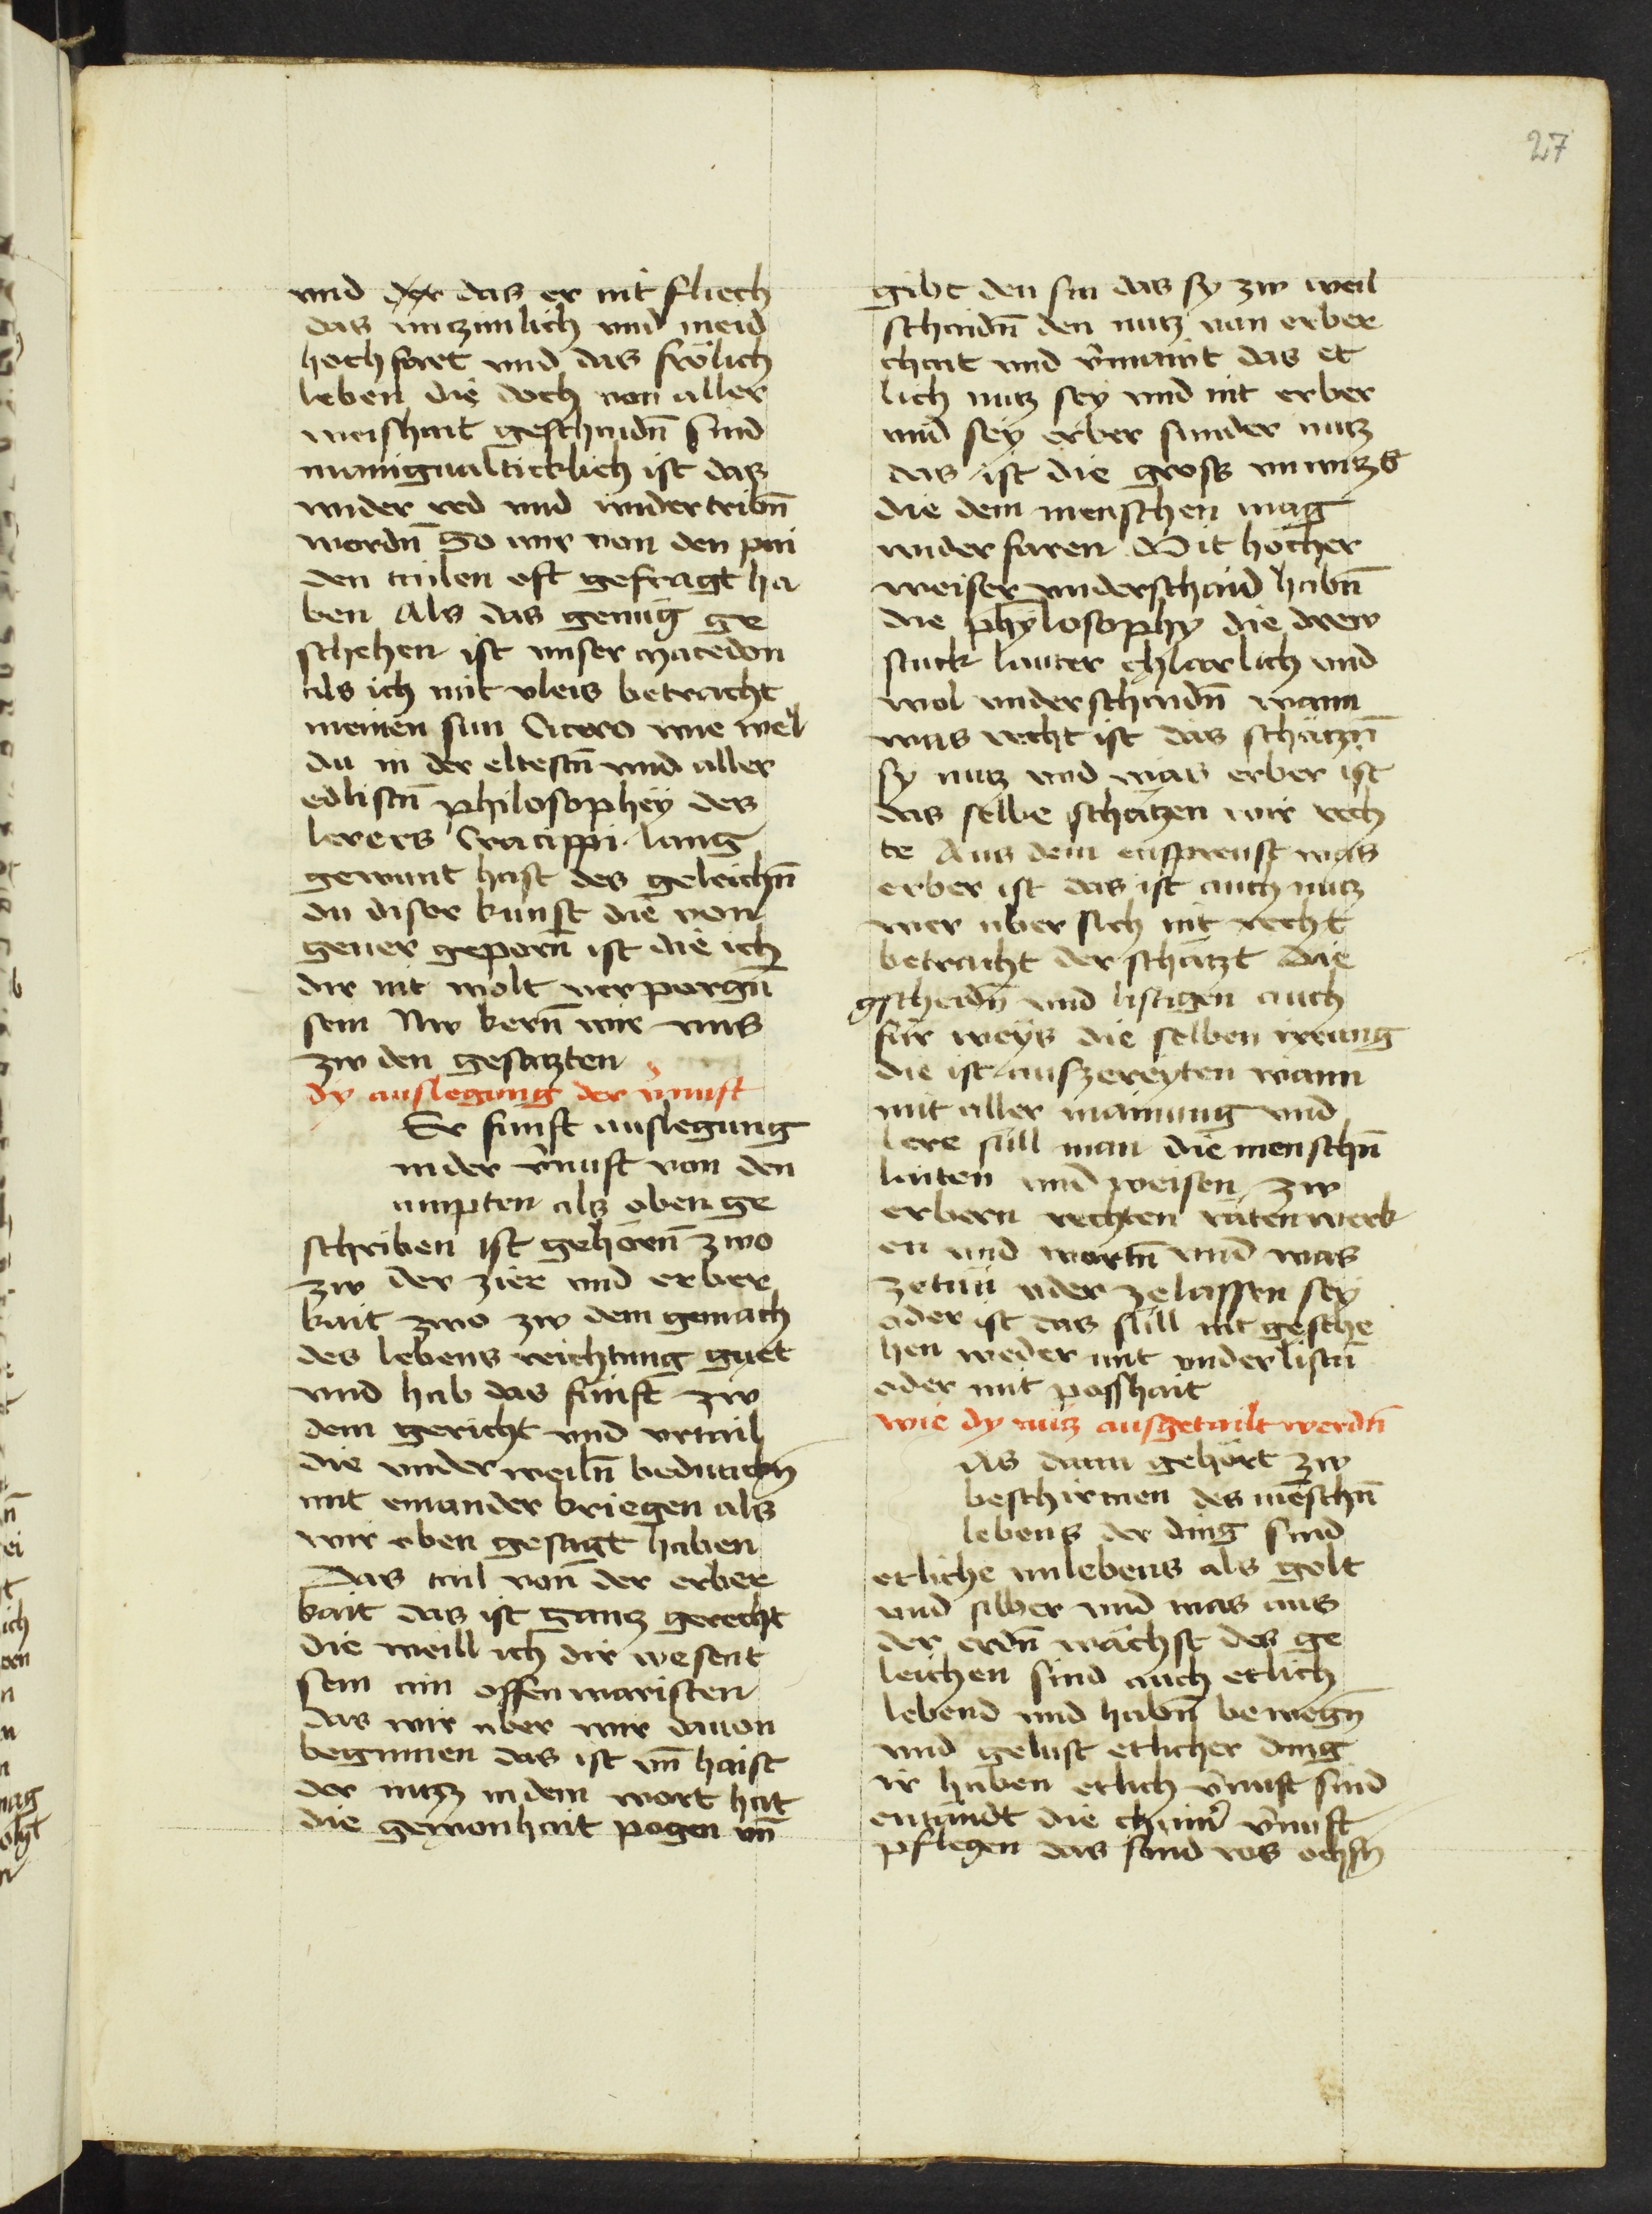 27
vnd der das er nit fliech
das vnczimlich vnd meid
hochfart vnd das frölich
leben die doch von aller
weishait geschaidn̄ sind
manigualticklich ist das
wider red vnd widertribn̄
wordn̄ So wir von den pai
den tailen oft gefragt ha
ben Als das genüg ge
schehen ist vnser macedon
als ich mit vleis betracht
meinen sun Cicero wie wol
du in der eltestn̄ vnd aller
edlistn̄ philosophey des
lerers Cracippi lang
gewant hast des geleichn̄
du diser kunst die von
gener geporn̄ ist die ich
dir nit wolt verporgn̄
sein Nw kern̄ wir vns
zw den gesaczten
dy auslegung der v̄nuft
Er funft auslegung
in der v̄nuft von den
ampten als oben ge
schriben ist gehörn̄ zwo
zw der zier vnd erber
kait zwo zw dem gemach
des lebens reichtung guet
vnd hab das funft zw
dem gericht vnd vrtail
die vnderweiln̄ bedutten
mit einander kriegen als
wir oben gesagt haben
Das tail von̄ der erber
kait das ist gancz gerecht
die weill ich dir wesent
sein ain offenwaristen
das wir aber wir dauon
beginnen das ist vn̄ haist
der nucz in dem wort hat
die gewonhait pogen vn̄
gibt den sin das sy zw weil
schaidn̄ den nucz van erber
chait vnd v̄maint das et
lich nucz sey vnd nit erber
vnd sey erber sunder nucz
das ist die gross
die dem menschen mag
widerfaren Mit hocher
weiser vnderschaid habn̄
die phylosophy die drew
stuck lauter chlarlich vnd
wol vnderschaidn̄ wann
was recht ist das schaczn̄
sy nucz vnd was erber ist
das selbe schäczen wir rech
te Aus dem enspreust was
erber ist das ist auch nucz
wer uber sich nit recht
betracht der schäczt die
gscheidn̄ vnd listigen auch
für weys die selben irrung
die ist auszereyten wann
mit aller mainung vnd
lere süll man die menschn̄
laiten vnd weisen zw
erbern rechten räten werk
en vnd wortn̄ vnd was
zetun oder zelassen sey
oder ist das süll nit gesche
hen weder mit vnderlistn̄
oder mit posshait
wie dy nucz ausgetailt werdn̄
As dann gehört zw
beschirmen des mēschn̄
lebens der ding sind
etliche vnlebens als golt
vnd silber vnd was aus
der erdn̄ wächst des ge
leichen sind auch etlich
lebend vnd habn̄ bewegn̄
vnd gelust etlicher ding
ir haben etlich v̄nuft sind
entändt die chain̄ v̄nuft
pflegen das sind ros ochsn̄